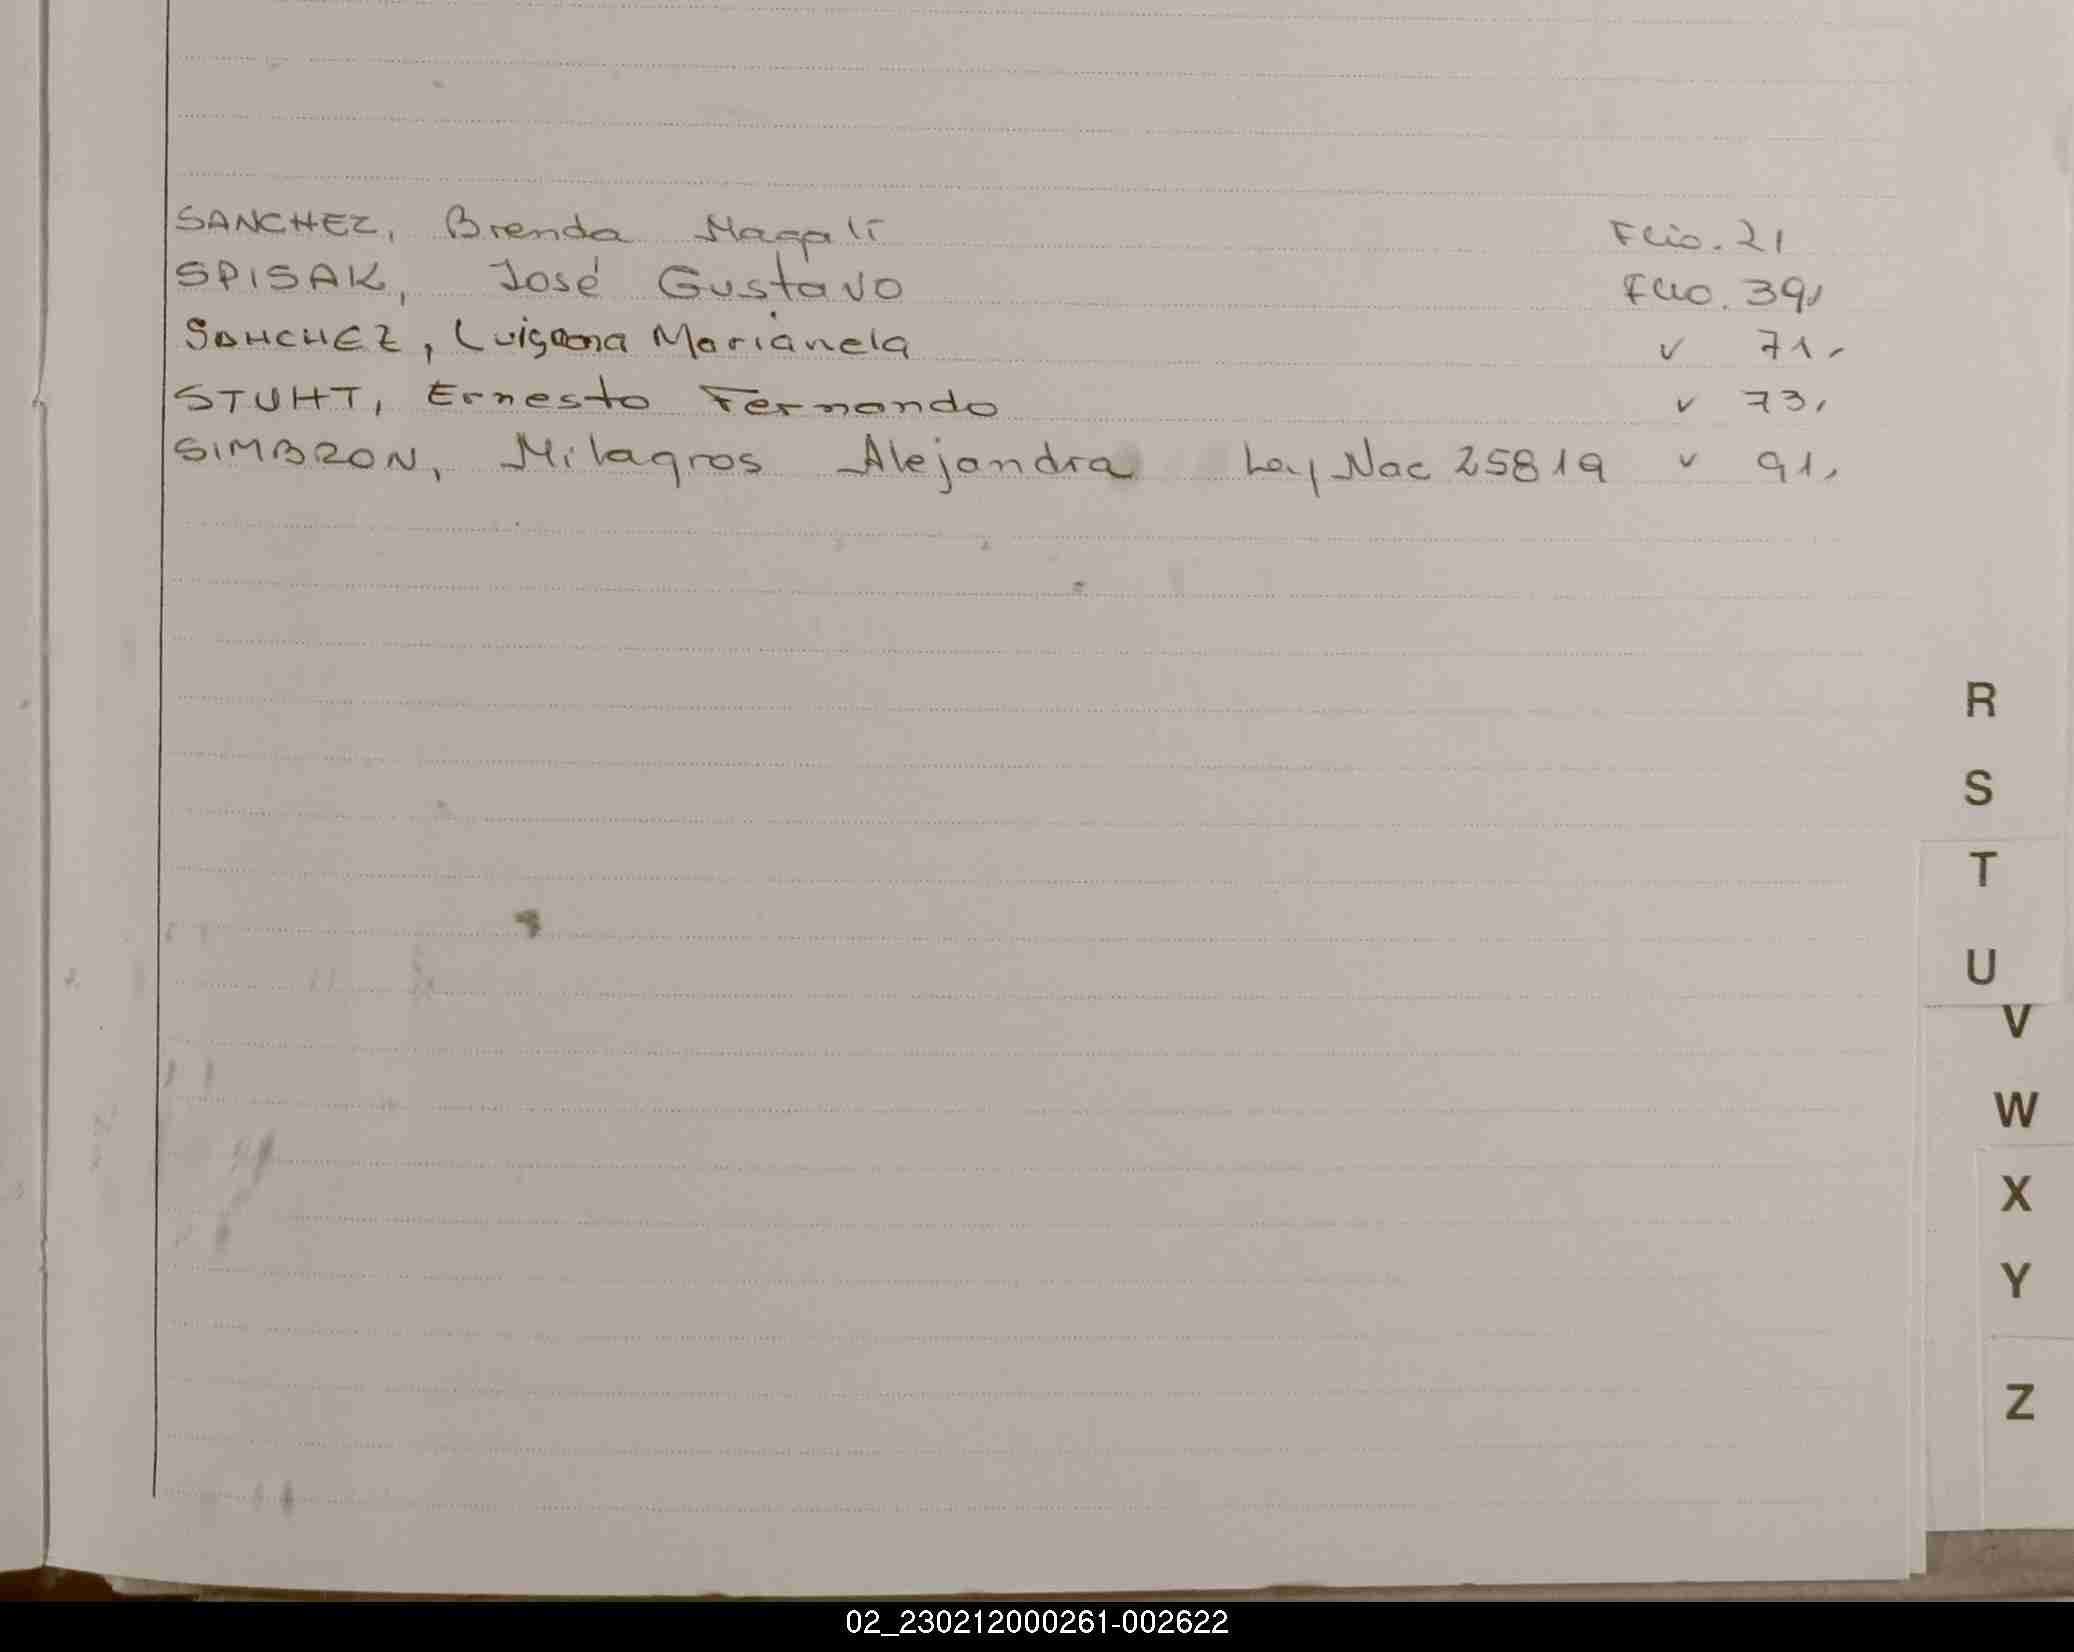 SANCHEZ, Brenda Magalí Flio. 21
SPISAK, José Gustavo Flio. 39,
SANCHEZ, Marianela v 71.
STUHT, Ernesto Fernando v 73,
SIMBRON, Milagros Alejandra Ley Nac 25819 v 91,
R
S
T
U
V
W
X
Y
Z
02_230212000261-002622